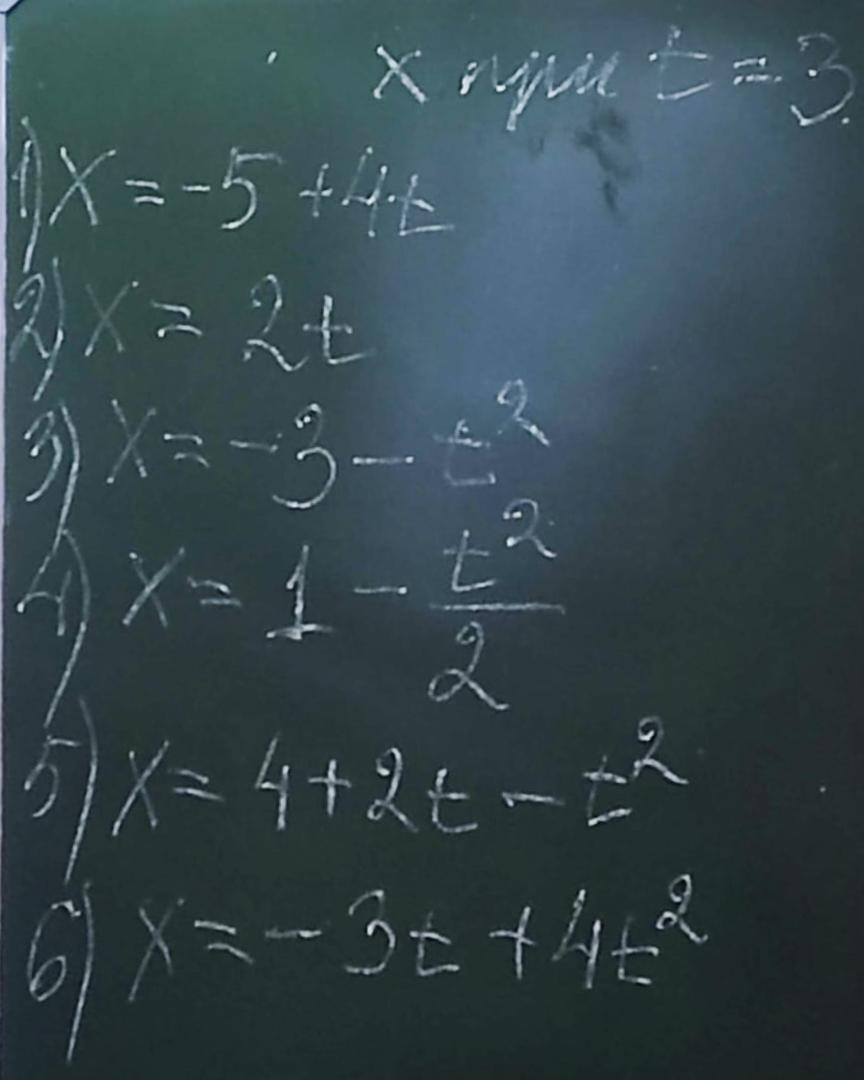 x при t = 3.
1) x = -5 + 4t
2) x = 2t
3) x = -3 - t²
4) x = 1 - t²/2
5) x = 4 + 2t - t²
6) x = -3t + 4t²